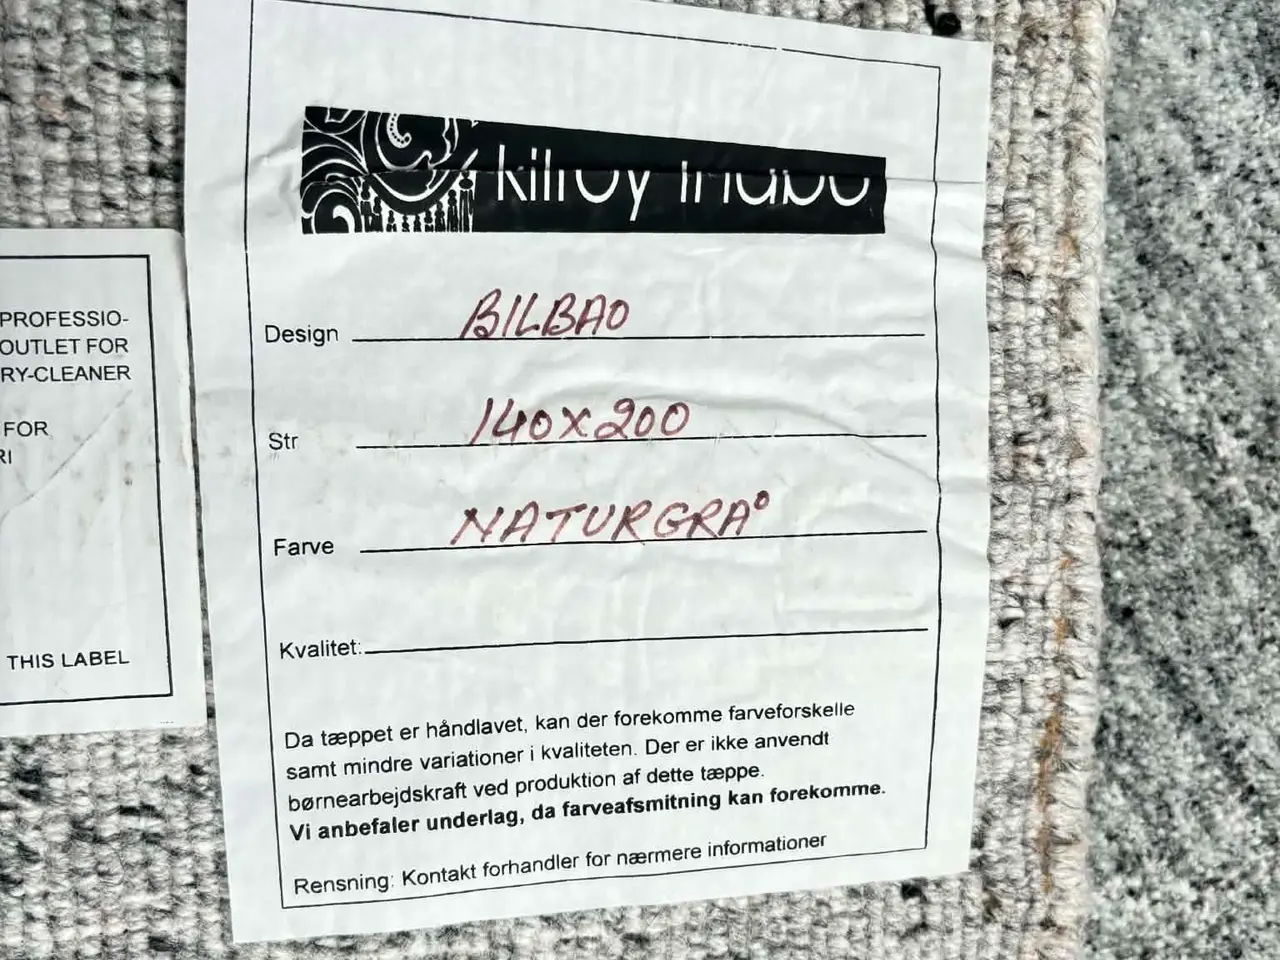 PROFESSIO-
OUTLET FOR
RY-CLEANER
FOR
RI
THIS LABEL
kilroy indbo
Design BILBAO
Str 140x200
Farve NATURGRÅ
Kvalitet:
Da tæppet er håndlavet, kan der forekomme farveforskelle
samt mindre variationer i kvaliteten. Der er ikke anvendt
børnearbejdskraft ved produktion af dette tæppe.
Vi anbefaler underlag, da farveafsmitning kan forekomme.
Rensning: Kontakt forhandler for nærmere informationer